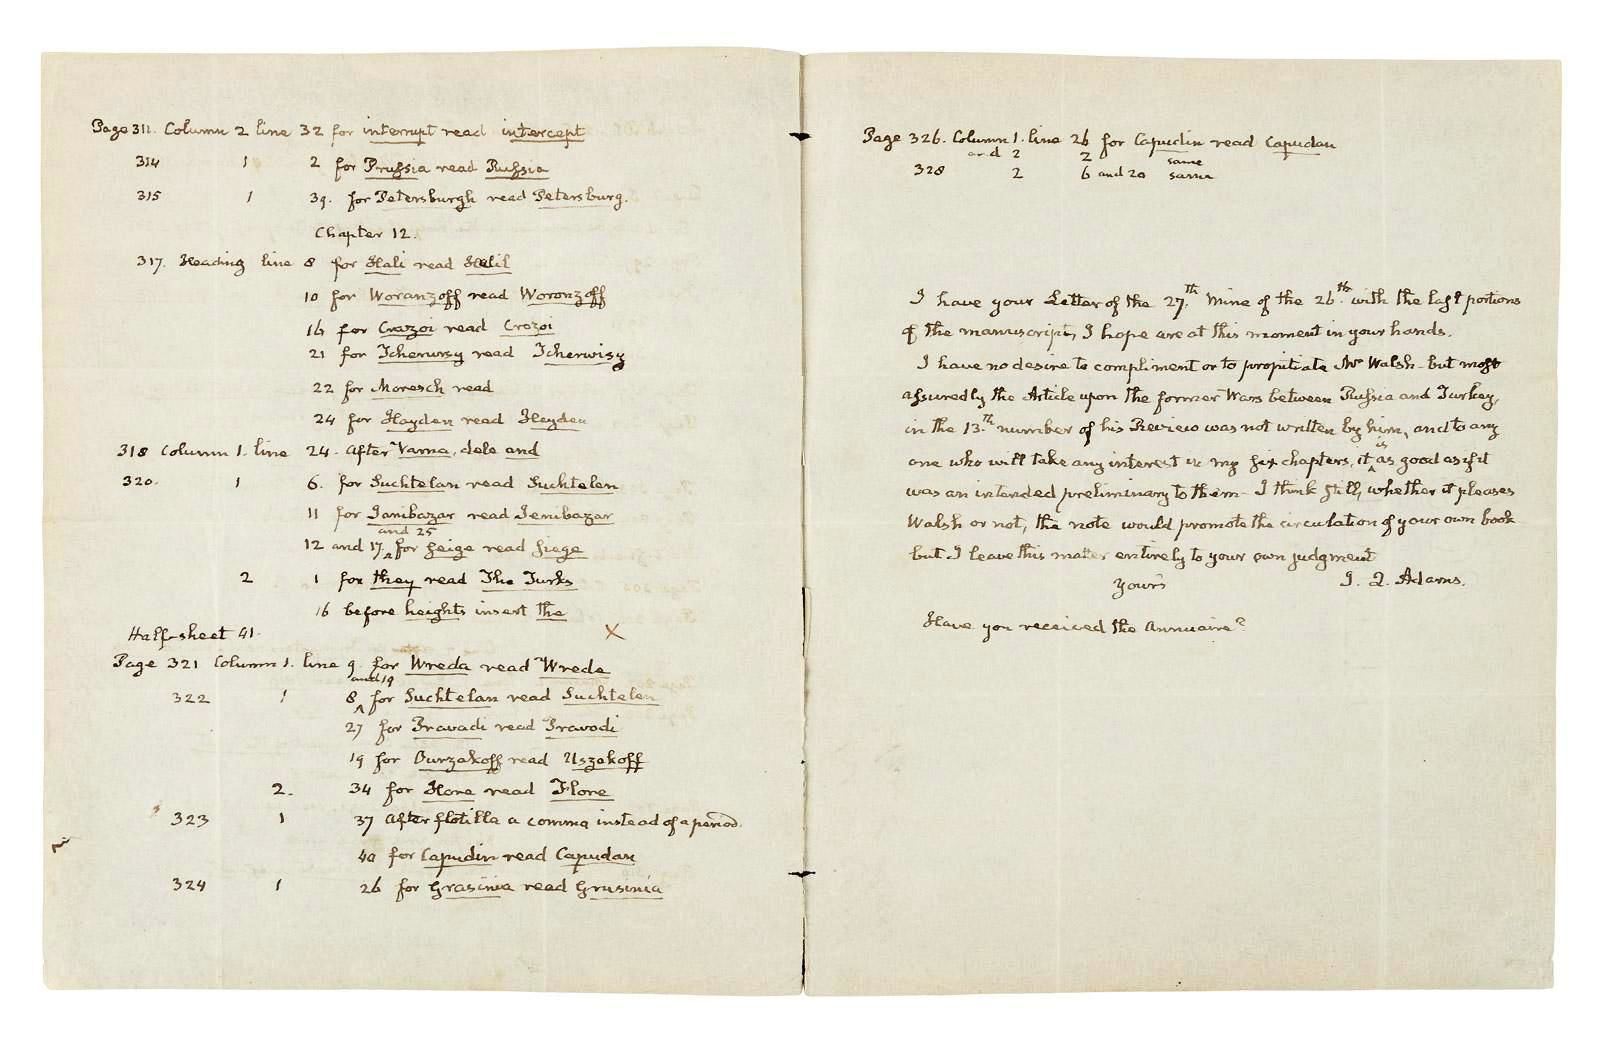 Page 311. Column 2 line 32 for interrupt read intercept
314 1 2 for Prussia read Russia
315 1 39. for Petersburgh read Petersburg.
Chapter 12.
317. Heading line 8 for Hali read Halil
10 for Woranzoff read Woronzoff
16 for Crazoi read Crozoi
21 for Tcherwisy read Tcherwizy
22 for Moresch read
24 for Hayden read Heyden
318 Column 1. line 24. after Varna, dele and
320. 1 6. for Suchtelan read Suchtelen
11 for Janibazar read Jenibazar
and 25
12 and 17. ^ for seige read siege
2 1 for they read The Turks
16 before heights insert the
Half-sheet 41. X
Page 321 Column 1. line 9. for Wreda read Wrede
and 19
322 1 8 ^ for Suchtelan read Suchtelen
27 for Travadi read Travodi
19 for Ourzakoff read Uszakoff
2. 34 for Hore read Flore
323 1 37 After flotilla a comma instead of a period.
40 for Capudin read Capudan
324 1 26 for Grasinia read Grusinia
Page 326. Column 1. line 26 for Capudin read Capudan
and 2 2 same
328 2 6 and 20 same
I have your Letter of the 27.th mine of the 26.th with the last portions
of the manuscript, I hope are at this moment in your hands.
I have no desire to compliment or to propitiate Mr Walsh - but most
assuredly the Article upon the former Wars between Russia and Turkey,
in the 13.th number of his Review was not written by him, and to any
is
one who will take any interest in my six chapters, it ^ as good as if it
was an intended preliminary to them - I think still, whether it pleases
Walsh or not, the note would promote the circulation of your own book
but I leave this matter entirely to your own judgment
Yours J. Q. Adams.
Have you received the Annuaire?